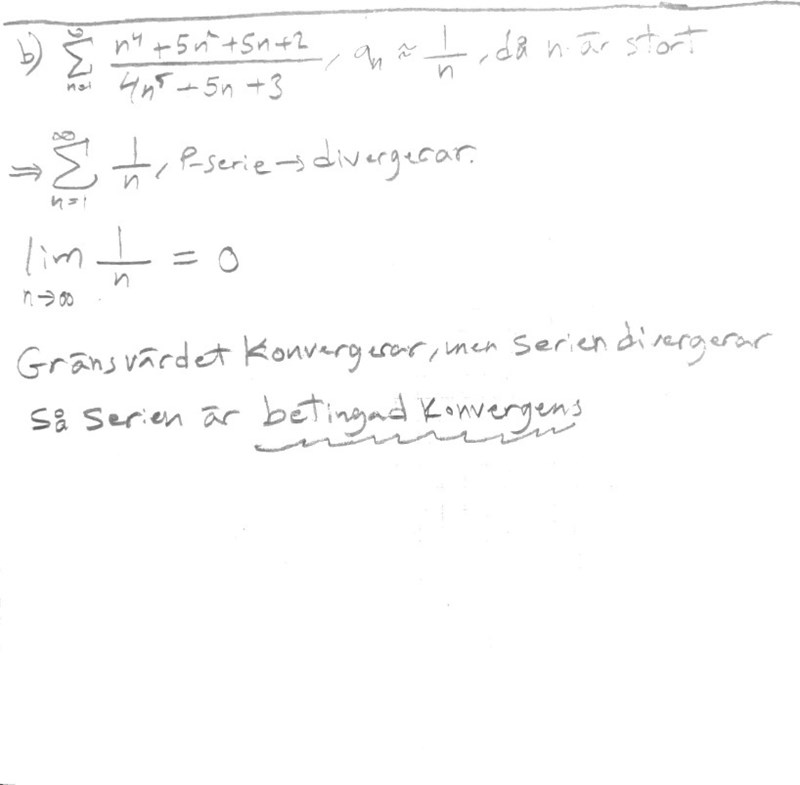 b) ∞∑n=1 (n⁴ + 5n² + 5n + 2)/(4n⁵ + 5n + 3), aₙ ≈ 1/n, då n är stort
⇒ ∞∑n=1 1/n, P-serie → divergerar.
lim n→∞ 1/n = 0
Gränsvärdet Konvergerar, men serien divergerar
så serien är betingad Konvergens